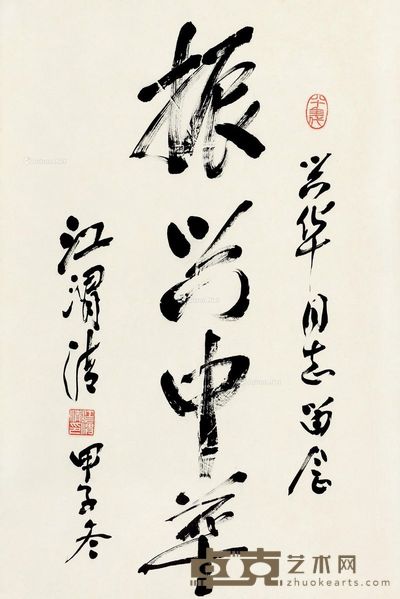 兴华同志留念
振兴中华
江渭清
甲子冬
卓克艺术网
zhuokearts.com